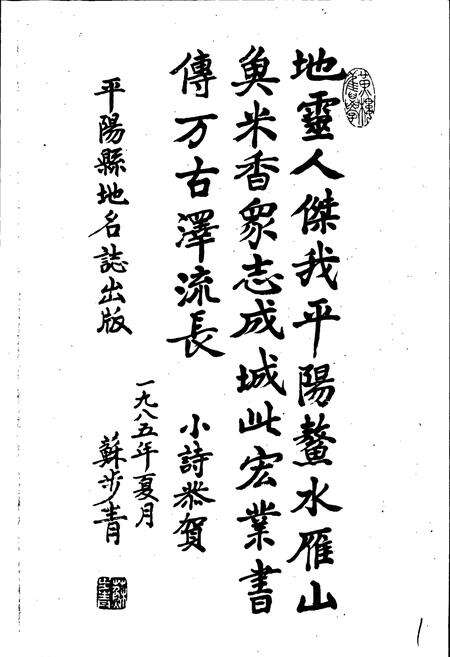 地靈人傑我平陽鰲水雁山
魚米香眾志成城此宏業書
傳万古澤流長
小詩恭賀
平陽縣地名誌出版
一九八五年夏月
蘇步青
1